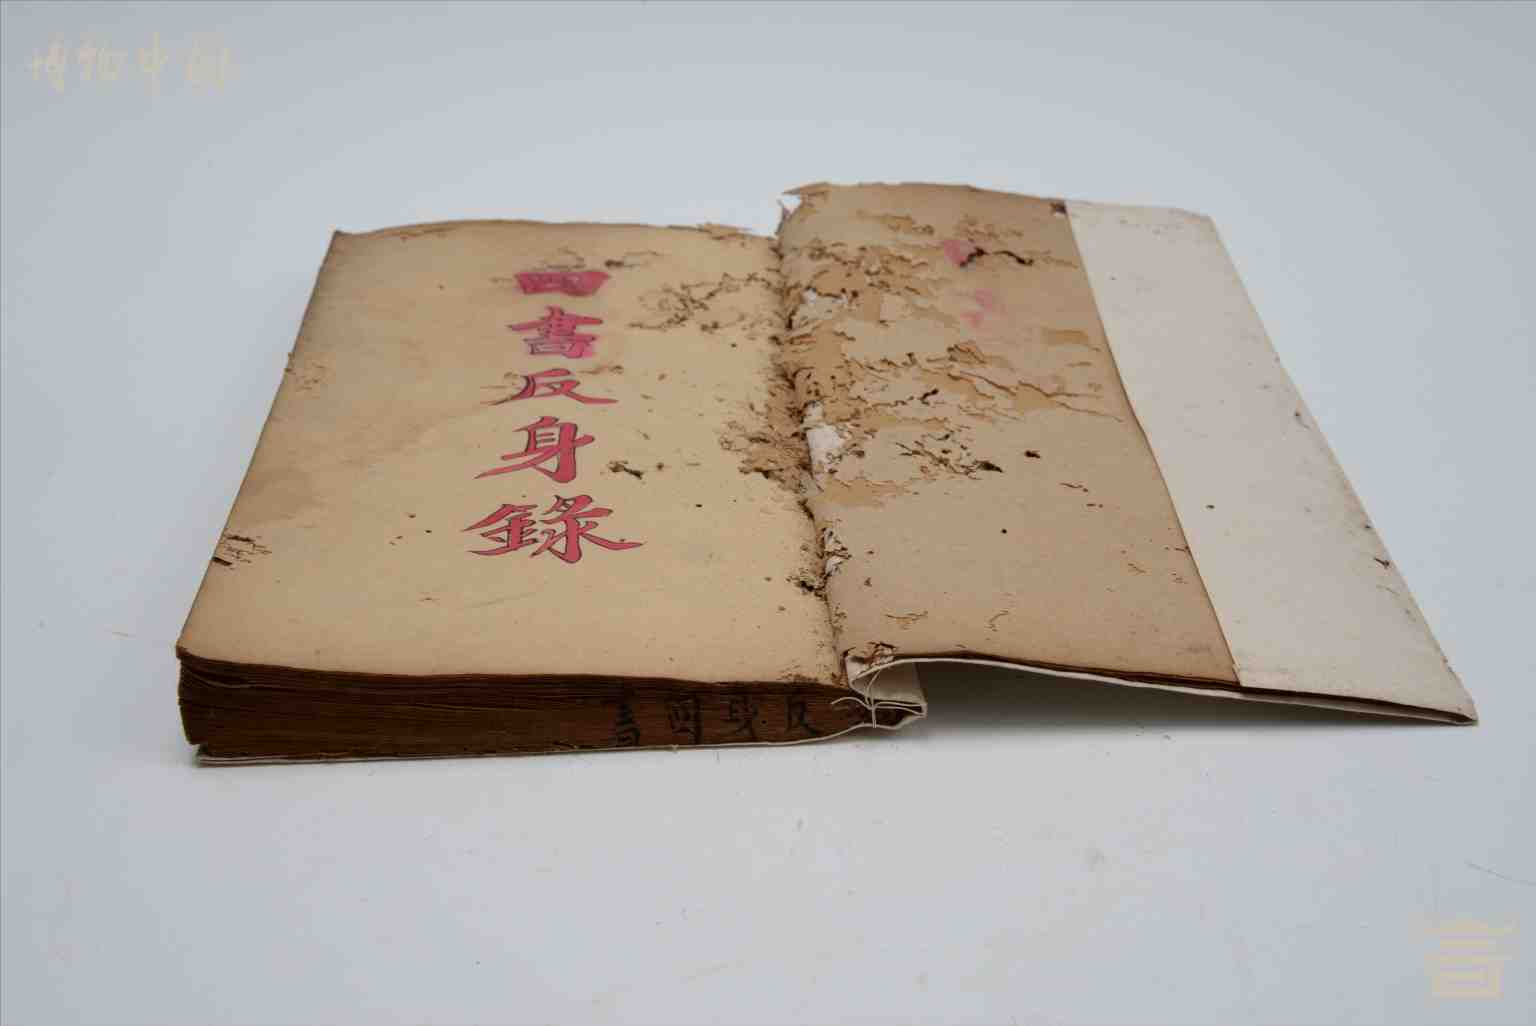 博物中国
四書反身錄
書四身反